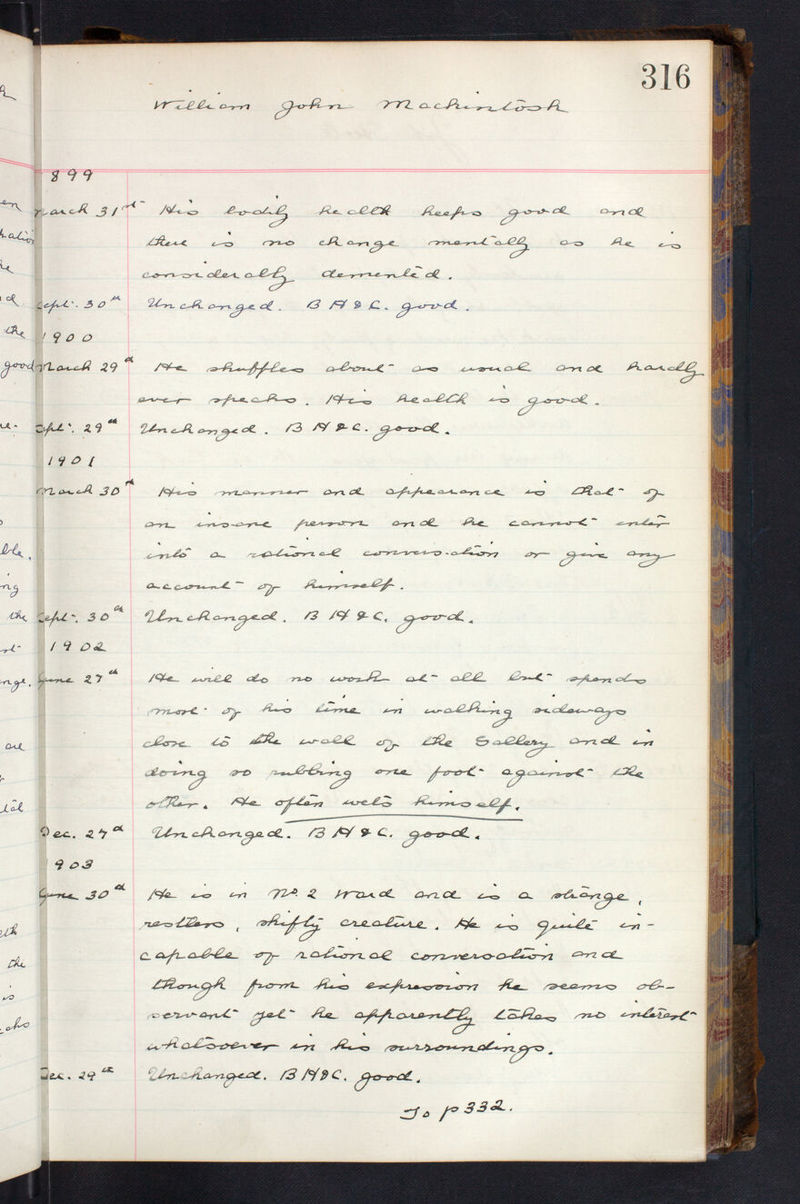 316
William John Mackintosh
1899
March 31st His bodily health keeps good and
there is no change mentally as he is
considerably demented.
Sept. 30th Unchanged. B H & C. good.
1900
March 29th He shuffles about as usual and hardly
ever speaks. His health is good.
Sept. 29th Unchanged. B H & C. good.
1901
March 30th His manner and appearance is that of
an insane person and he cannot enter
into a rational conversation or give any
account of himself.
Sept. 30th Unchanged. B H & C. good.
1902
June 27th He will do no work at all but spends
most of his time in walking sideways
close to the wall of the Gallery and in
doing so rubbing one foot against the
other. He often wets himself.
Dec. 27th Unchanged. B H & C. good.
1903
June 30th He is in No. 2 Ward and is a strange,
restless, shifty creature. He is quite in-
capable of rational conversation and
though from his expression he seems ob-
servant yet he apparently takes no interest
whatsoever in his surroundings.
Dec. 29th Unchanged. B H & C. good.
To p 332.